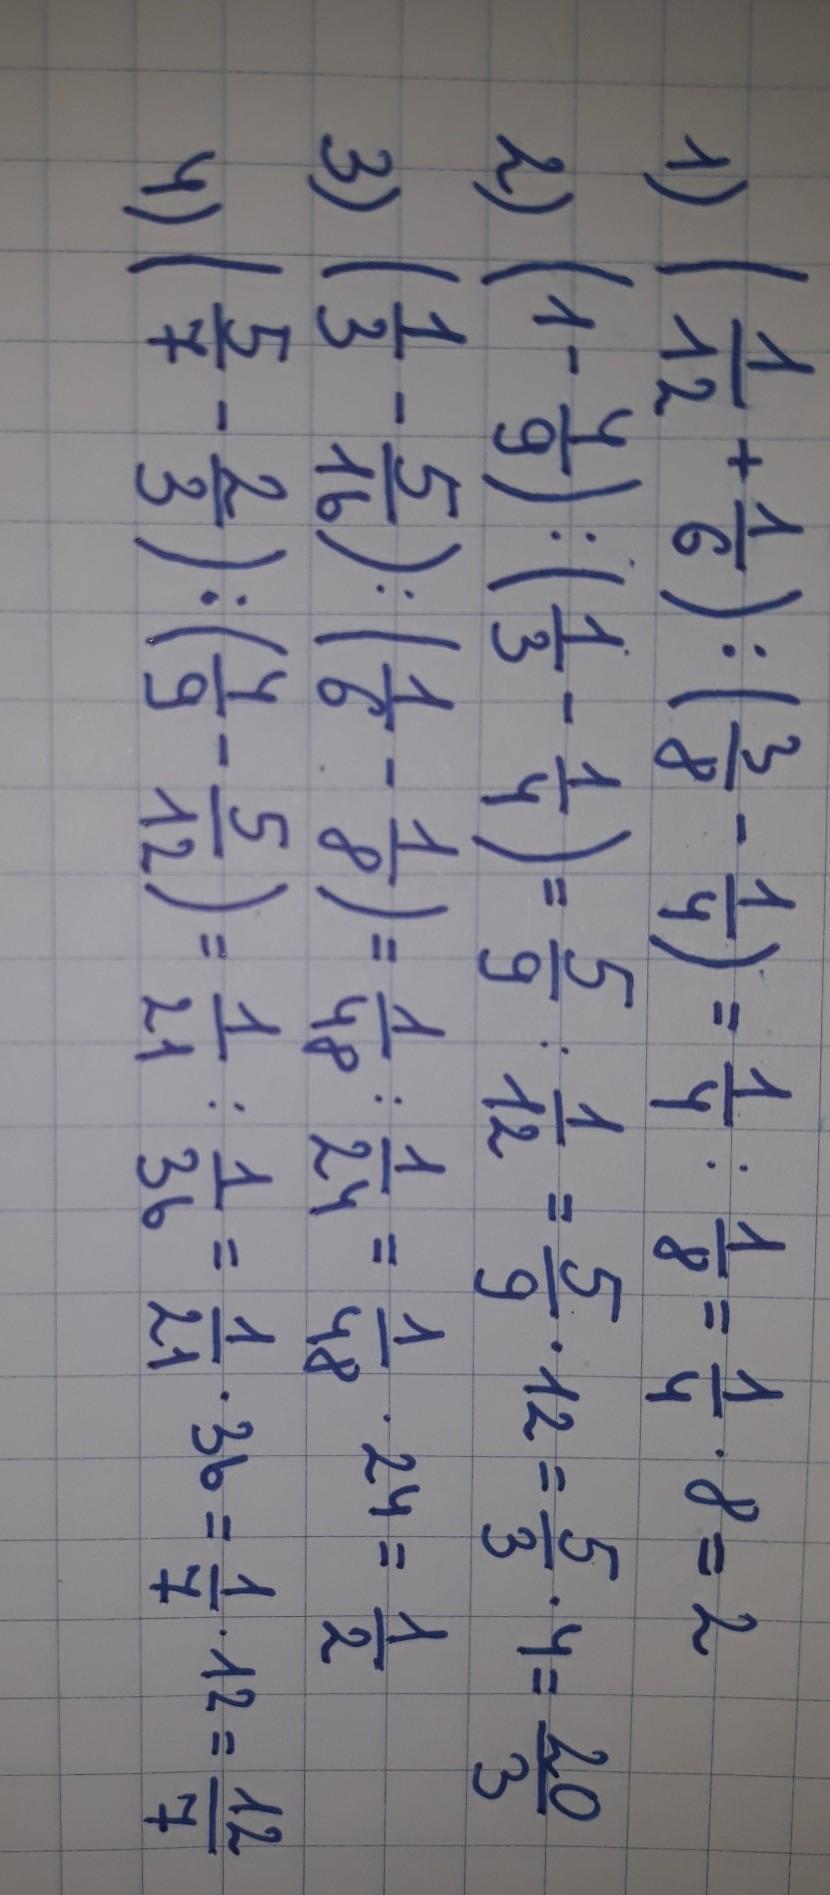 1) (1/12 + 1/6) : (3/8 - 1/4) = 1/4 : 1/8 = 1/4 · 8 = 2
2) (1 - 4/9) : (1/3 - 1/4) = 5/9 : 1/12 = 5/9 · 12 = 5/3 · 4 = 20/3
3) (1/3 - 5/16) : (1/6 - 1/8) = 1/48 : 1/24 = 1/48 · 24 = 1/2
4) (5/7 - 2/3) : (4/9 - 5/12) = 1/21 : 1/36 = 1/21 · 36 = 1/7 · 12 = 12/7